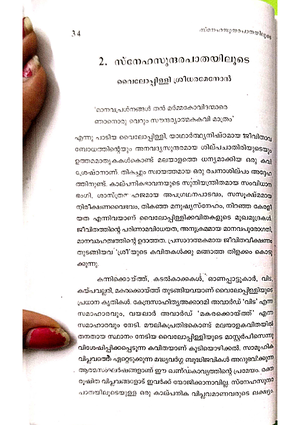 34
സ്നേഹസുന്ദരപാതയിലൂടെ
2. സ്നേഹസുന്ദരപാതയിലൂടെ
വൈലോപ്പിള്ളി ശ്രീധരമേനോൻ
'മാനവപ്രശ്നങ്ങൾ തൻ മർമ്മകോവിദന്മാരെ
ഞാനൊരു വെറും സൗന്ദര്യാത്മകകവി മാത്രം'
എന്നു പാടിയ വൈലോപ്പിള്ളി, യാഥാർത്ഥ്യനിഷ്ഠമായ ജീവിതാവ
ബോധത്തിന്റെയും അനവദ്യസുന്ദരമായ ശില്പചാതുരിയുടെയും
ഉത്തമമാതൃകകൾകൊണ്ട് മലയാളത്തെ ധന്യമാക്കിയ ഒരു കവി
ശ്രേഷ്ഠനാണ്. തികച്ചും സ്വായത്തമായ ഒരു രചനാശില്പം അദ്ദേഹ
ത്തിനുണ്ട്. കാല്പനികഭാവനയുടെ സുനിയന്ത്രിതമായ സംവിധാന
ഭംഗി, ശാസ്ത്രജ്ഞ സഹജമായ അപഗ്രഥനപാടവം, സസൂക്ഷ്മമായ
നിരീക്ഷണവൈഭവം, തികഞ്ഞ മനുഷ്യസ്നേഹം, നിറഞ്ഞ കേരളീ
യത എന്നിവയാണ് വൈലോപ്പിള്ളിക്കവിതകളുടെ മുഖമുദ്രകൾ.
ജീവിതത്തിന്റെ പരിണാമവിധേയത, അന്യൂനമായ മാനവപുരോഗതി,
മാനവമഹത്ത്വത്തിന്റെ ഉദാത്തത, പ്രസാദാത്മകമായ ജീവിതവീക്ഷണം
തുടങ്ങിയവ 'ശ്രീ'യുടെ കവിതകൾക്കു മങ്ങാത്ത തിളക്കം കൊടു
ക്കുന്നു.
കന്നിക്കൊയ്ത്ത്, കടൽകാക്കകൾ, ഓണപ്പാട്ടുകാർ, വിട,
കയ്പവല്ലരി, മകരക്കൊയ്ത്ത് തുടങ്ങിയവയാണ് വൈലോപ്പിള്ളിയുടെ
പ്രധാന കൃതികൾ. കേന്ദ്രസാഹിത്യഅക്കാദമി അവാർഡ് 'വിട' എന്ന
സമാഹാരവും, വയലാർ അവാർഡ് 'മകരക്കൊയ്ത്ത്' എന്ന
സമാഹാരവും നേടി. മൗലികപ്രതിഭകൊണ്ട് മലയാളകവിതയിൽ
തനതായ സ്ഥാനം നേടിയ വൈലോപ്പിള്ളിയുടെ മാസ്റ്റർപീസെന്നു
വിശേഷിപ്പിക്കപ്പെടുന്ന കവിതയാണ് കുടിയൊഴിക്കൽ. സാമൂഹിക
വിപ്ലവത്തെ ഏറ്റെടുക്കുന്ന മദ്ധ്യവർഗ്ഗ ബുദ്ധിജീവികൾ അനുഭവിക്കുന്ന
ആത്മസംഘർഷങ്ങളാണ് ഈ ഖണ്ഡകാവ്യത്തിന്റെ പ്രമേയം.
രൂഷിത വിപ്ലവങ്ങളോട് ഇവർക്ക് യോജിക്കാനാവില്ല. സ്നേഹസുന്ദര
പാതയിലൂടെയുള്ള ഒരു കാല്പനിക വിപ്ലവമാണവരുടെ ലക്ഷ്യം